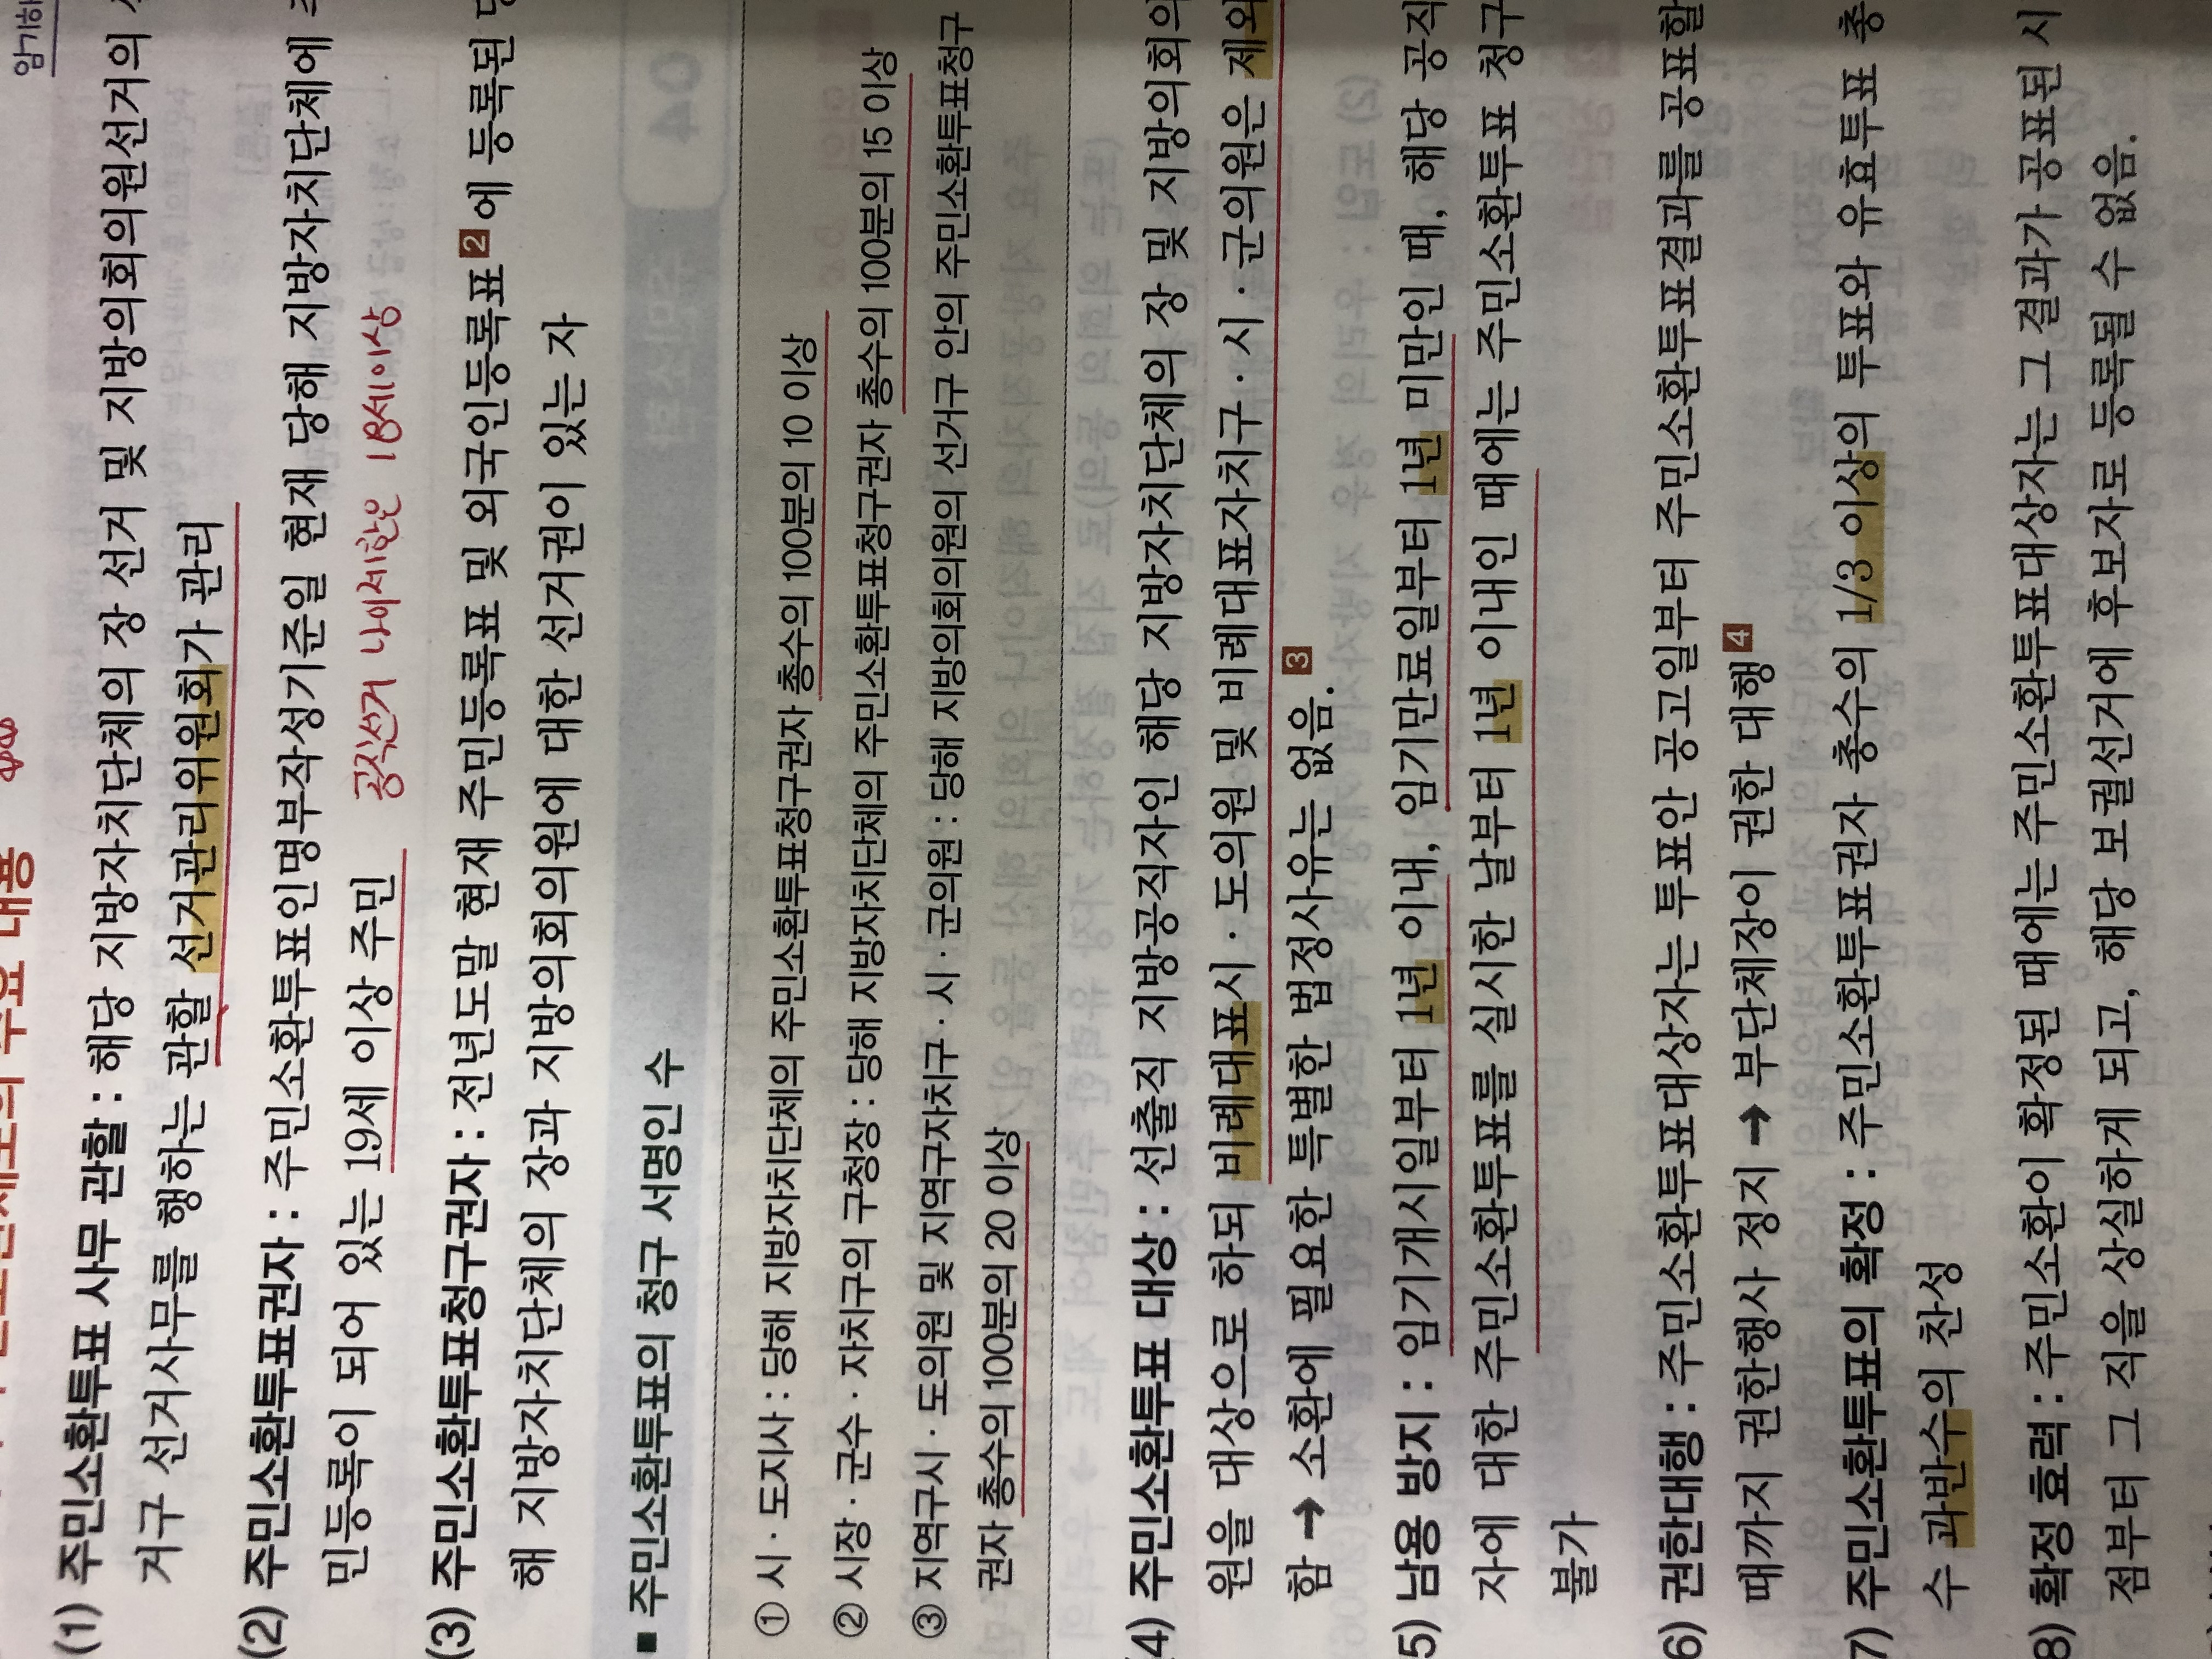 암기하
주요 내용
(1) 주민소환투표 사무 관할 : 해당 지방자치단체의 장 선거 및 지방의회의원선거의
거구 선거사무를 행하는 관할 선거관리위원회가 관리
(2) 주민소환투표권자 : 주민소환투표인명부작성기준일 현재 당해 지방자치단체에
민등록이 되어 있는 19세 이상 주민 공직선거 나이제한은 18세이상
(3) 주민소환투표청구권자 : 전년도말 현재 주민등록표 및 외국인등록표2에 등록된
해 지방자치단체의 장과 지방의회의원에 대한 선거권이 있는 자
■ 주민소환투표의 청구 서명인 수
① 시 · 도지사 : 당해 지방자치단체의 주민소환투표청구권자 총수의 100분의 10 이상
② 시장 · 군수 · 자치구의 구청장 : 당해 지방자치단체의 주민소환투표청구권자 총수의 100분의 15 이상
③ 지역구시 · 도의원 및 지역구자치구 · 시 · 군의원 : 당해 지방의회의원의 선거구 안의 주민소환투표청구
권자 총수의 100분의 20 이상
(4) 주민소환투표 대상 : 선출직 지방공직자인 해당 지방자치단체의 장 및 지방의회의
원을 대상으로 하되 비례대표시 · 도의원 및 비례대표자치구 · 시 · 군의원은 제외
함 → 소환에 필요한 특별한 법정사유는 없음.3
5) 남용 방지 : 임기개시일부터 1년 이내, 임기만료일부터 1년 미만인 때, 해당 공직
자에 대한 주민소환투표를 실시한 날부터 1년 이내인 때에는 주민소환투표 청구
불가
6) 권한대행 : 주민소환투표대상자는 투표안 공고일부터 주민소환투표결과를 공표할
때까지 권한행사 정지 → 부단체장이 권한 대행4
7) 주민소환투표의 확정 : 주민소환투표권자 총수의 1/3 이상의 투표와 유효투표 총
수 과반수의 찬성
8) 확정 효력 : 주민소환이 확정된 때에는 주민소환투표대상자는 그 결과가 공표된 시
점부터 그 직을 상실하게 되고, 해당 보궐선거에 후보자로 등록될 수 없음.